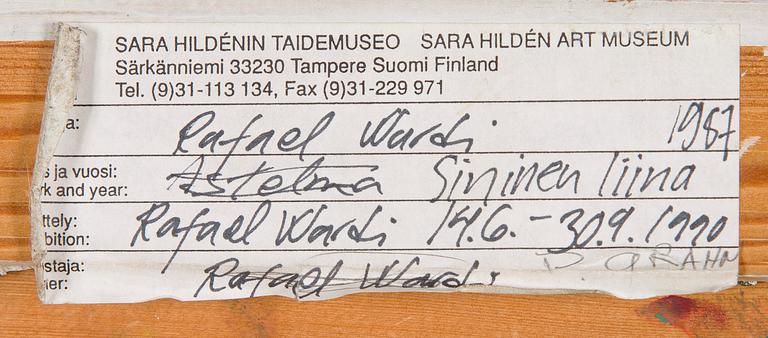 SARA HILDÉNIN TAIDEMUSEO SARA HILDÉN ART MUSEUM
Särkänniemi 33230 Tampere Suomi Finland
Tel. (9)31-113 134, Fax (9)31-229 971
a: Rafael Wardi 1987
s ja vuosi: Astelma Sininen liina
rk and year:
ttely: Rafael Wardi 14.6.-30.9.1990
bition:
staja: Rafael Wardi P. GRAHN
er: